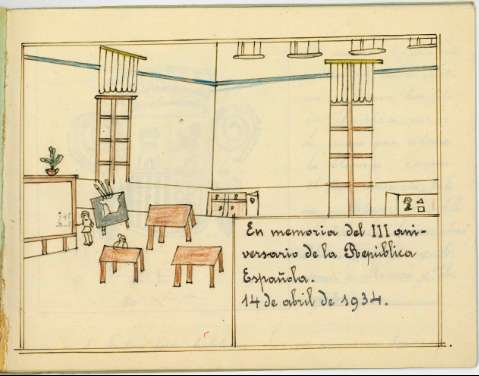 En memoria del III ani-
versario de la República
Española.
14 de abril de 1934.